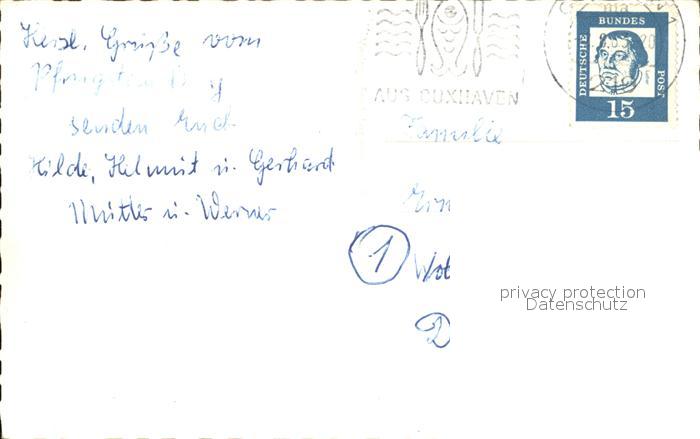 Herzl. Grüße vom
senden Euch
Hilde, Helmut u. Gerhard
Mutter u. Werner
AUS CUXHAVEN
DEUTSCHE BUNDES POST
15
Familie
1
privacy protection
Datenschutz